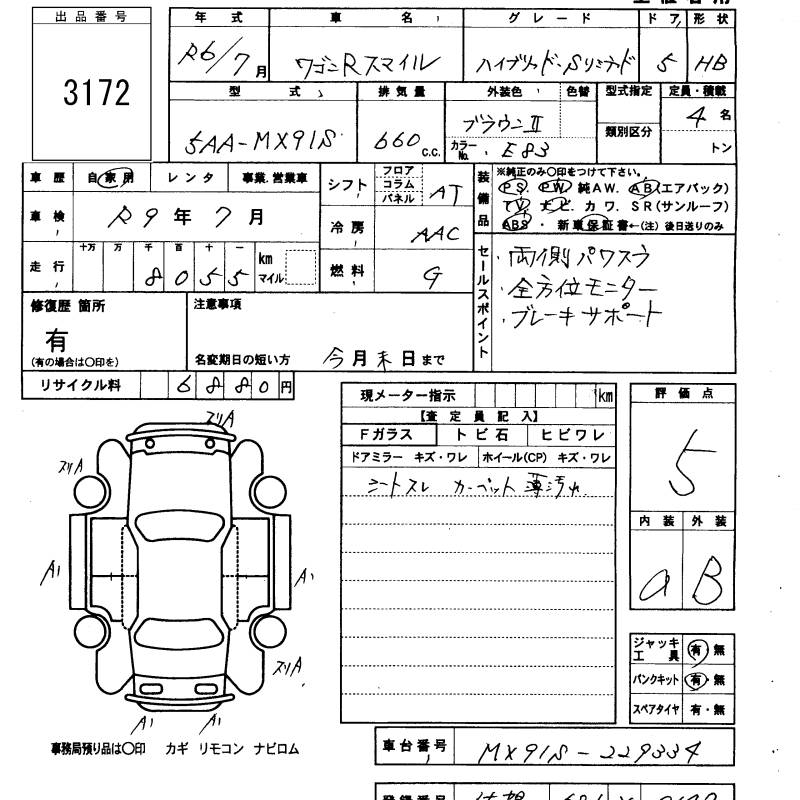 出品番号
3172
年式 車名 グレード ドア 形状
R6/7月 ワゴンRスマイル ハイブリッド・Sリミテッド 5 HB
型式 排気量 外装色 色替 型式指定 定員・積載
5AA-MX91S 660 C.C. ブラウンII 4名
カラーNo. E83 類別区分 トン
車歴 自家用 レンタ 事業、営業車
車検 R9年7月
十万 万 千 百 十 一
走行 8055 km マイル
シフト フロア コラム パネル AT
冷房 AAC
燃料 G
装備品
※純正のみ〇印をつけて下さい。
PS PW 純AW. AB(エアバック)
TV ナビ カワ. SR(サンルーフ)
ABS ・ 新車保証書←(注) 後日送りのみ
セールスポイント
・両側パワスラ
・全方位モニター
・ブレーキサポート
修復歴 箇所
有
(有の場合は〇印を)
注意事項
名変期日の短い方 今月末日まで
リサイクル料 6880円
現メーター指示 km
【査定員記入】
Fガラス トビ石 ヒビワレ
ドアミラー キズ・ワレ ホイール(CP) キズ・ワレ
シートスレ カーペット薄汚れ
評価点
5
内装 外装
a B
ズリA
ズリA
A1 A1
ズリA
A1 A1
ジャッキ工具 有・無
パンクキット 有・無
スペアタイヤ 有・無
事務局預り品は〇印 カギ リモコン ナビロム
車台番号 MX91S-229334
登録番号